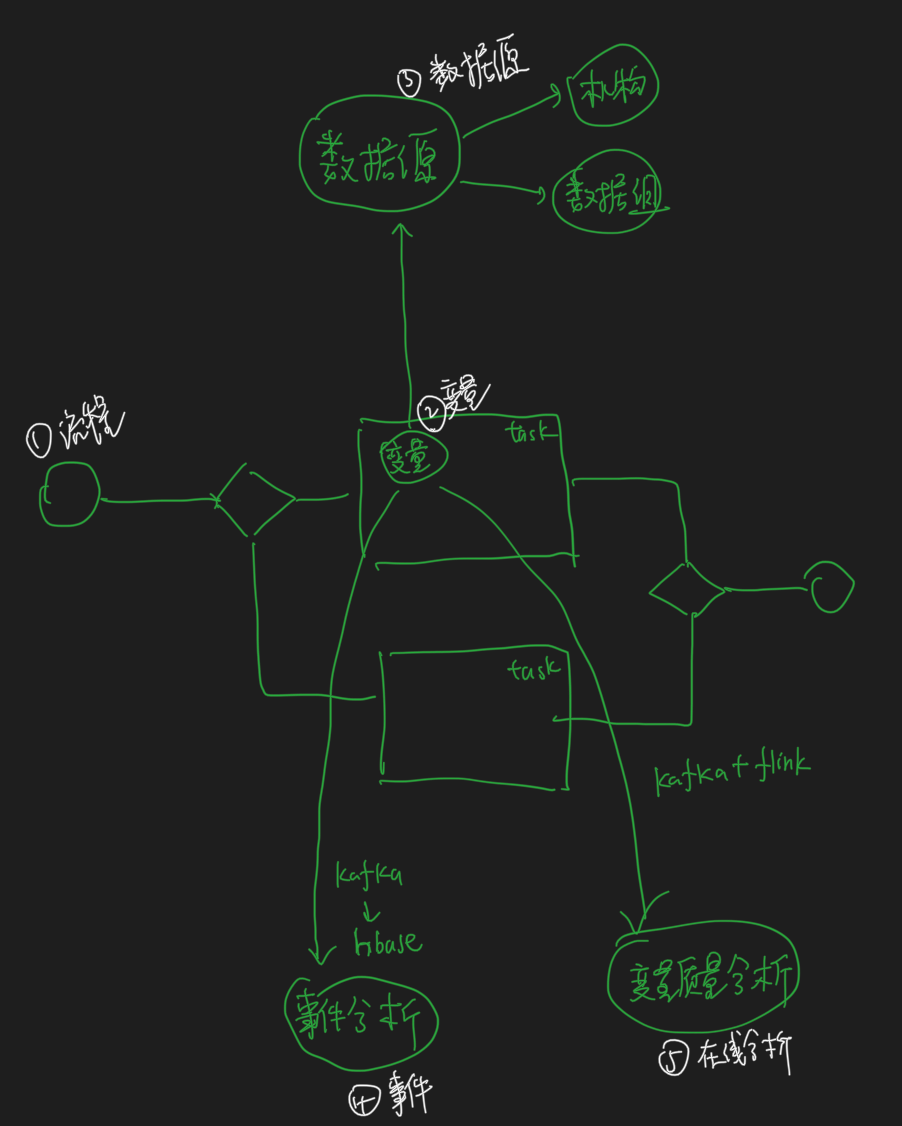 ③ 数据源
数据源
机构
数据组
① 流程
② 变量
变量
task
task
kafka + flink
kafka
↓
hbase
事件分析
变量质量分析
④ 事件
⑤ 在线分析